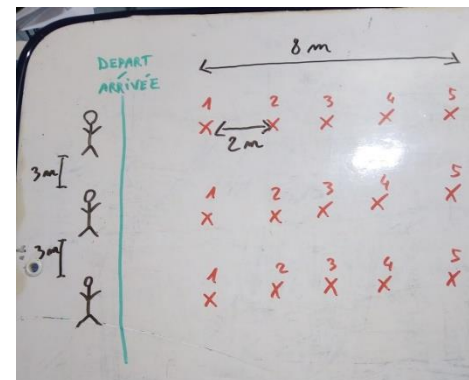 8 m
DEPART
ARRIVÉE
1 2 3 4 5
X X X X X
2 m
3m
1 2 3 4 5
X X X X X
3m
1 2 3 4 5
X X X X X